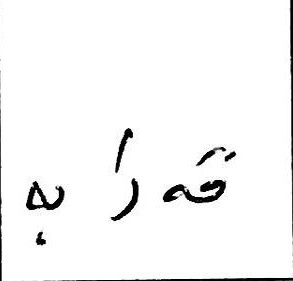 قەرابە